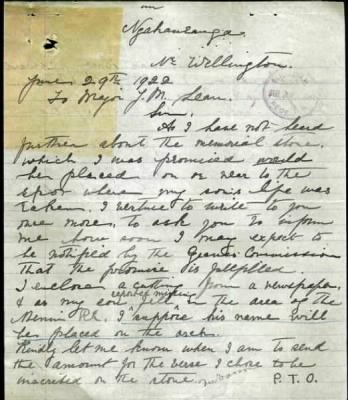 Ngahauranga
Nr Wellington.
June 29th 1922
To Major J. M. Lean.
Sir,
As I have not head
further about the memorial stone,
which I was promised would
be placed on or near to the
spot where my son's life was
taken. I venture to write to you
once more, to ask you to inform
me how soon I may expect to
be notified by the Graves Commission
that the promise is fulfilled.
I enclose a cutting from a newspaper,
reported missing
& as my son fell in the area of the
Menin Rd. I suppose his name will
be placed on the arch.
Kindly let me know when I am to send
the amount for the verse I chose to be
inscribed on the stone
P.T.O.